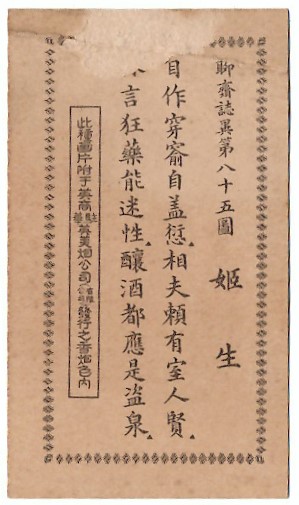 聊齋誌異第八十五圖
姬生
自作穿窬自盖愆相夫賴有室人賢
言狂藥能迷性釀酒都應是盗泉
此種畫片附于英商駐華英美烟公司發行之香烟包內